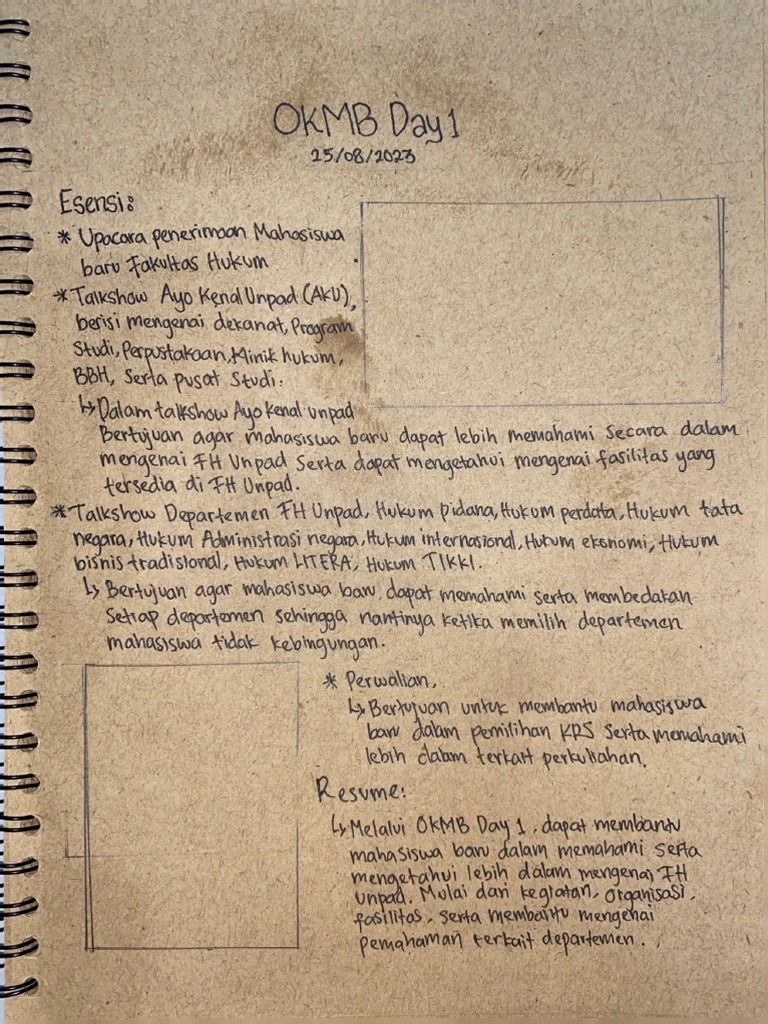 OKMB Day 1
25/08/2023
Esensi:
* Upacara penerimaan Mahasiswa
baru Fakultas Hukum
* Talkshow Ayo Kenal Unpad (AKU),
berisi mengenai dekanat, Program
Studi, Perpustakaan, Minik hukum,
BBH, Serta pusat Studi.
↳ Dalam talkshow Ayo Kenal unpad
Bertujuan agar mahasiswa baru dapat lebih memahami Secara dalam
mengenai FH Unpad Serta dapat mengetahui mengenai fasilitas yang
tersedia di FH Unpad.
* Talkshow Departemen FH Unpad, Hukum pidana, Hukum perdata, Hukum tata
negara, Hukum Administrasi negara, Hukum internasional, Hukum ekonomi, Hukum
bisnis tradisional, Hukum LITERA, Hukum TIKKI.
↳ Bertujuan agar mahasiswa baru dapat memahami serta membedakan
Setiap departemen sehingga nantinya ketika memilih departemen
mahasiswa tidak kebingungan.
* Perwalian,
↳ Bertujuan untuk membantu mahasiswa
baru dalam pemilihan KRS Serta memahami
lebih dalam terkait perkuliahan.
Resume:
↳ Melalui OKMB Day 1, dapat membantu
mahasiswa baru dalam memahami serta
mengetahui lebih dalam mengenai FH
unpad. Mulai dari kegiatan, organisasi,
fasilitas, serta membantu mengenai
pemahaman terkait departemen.